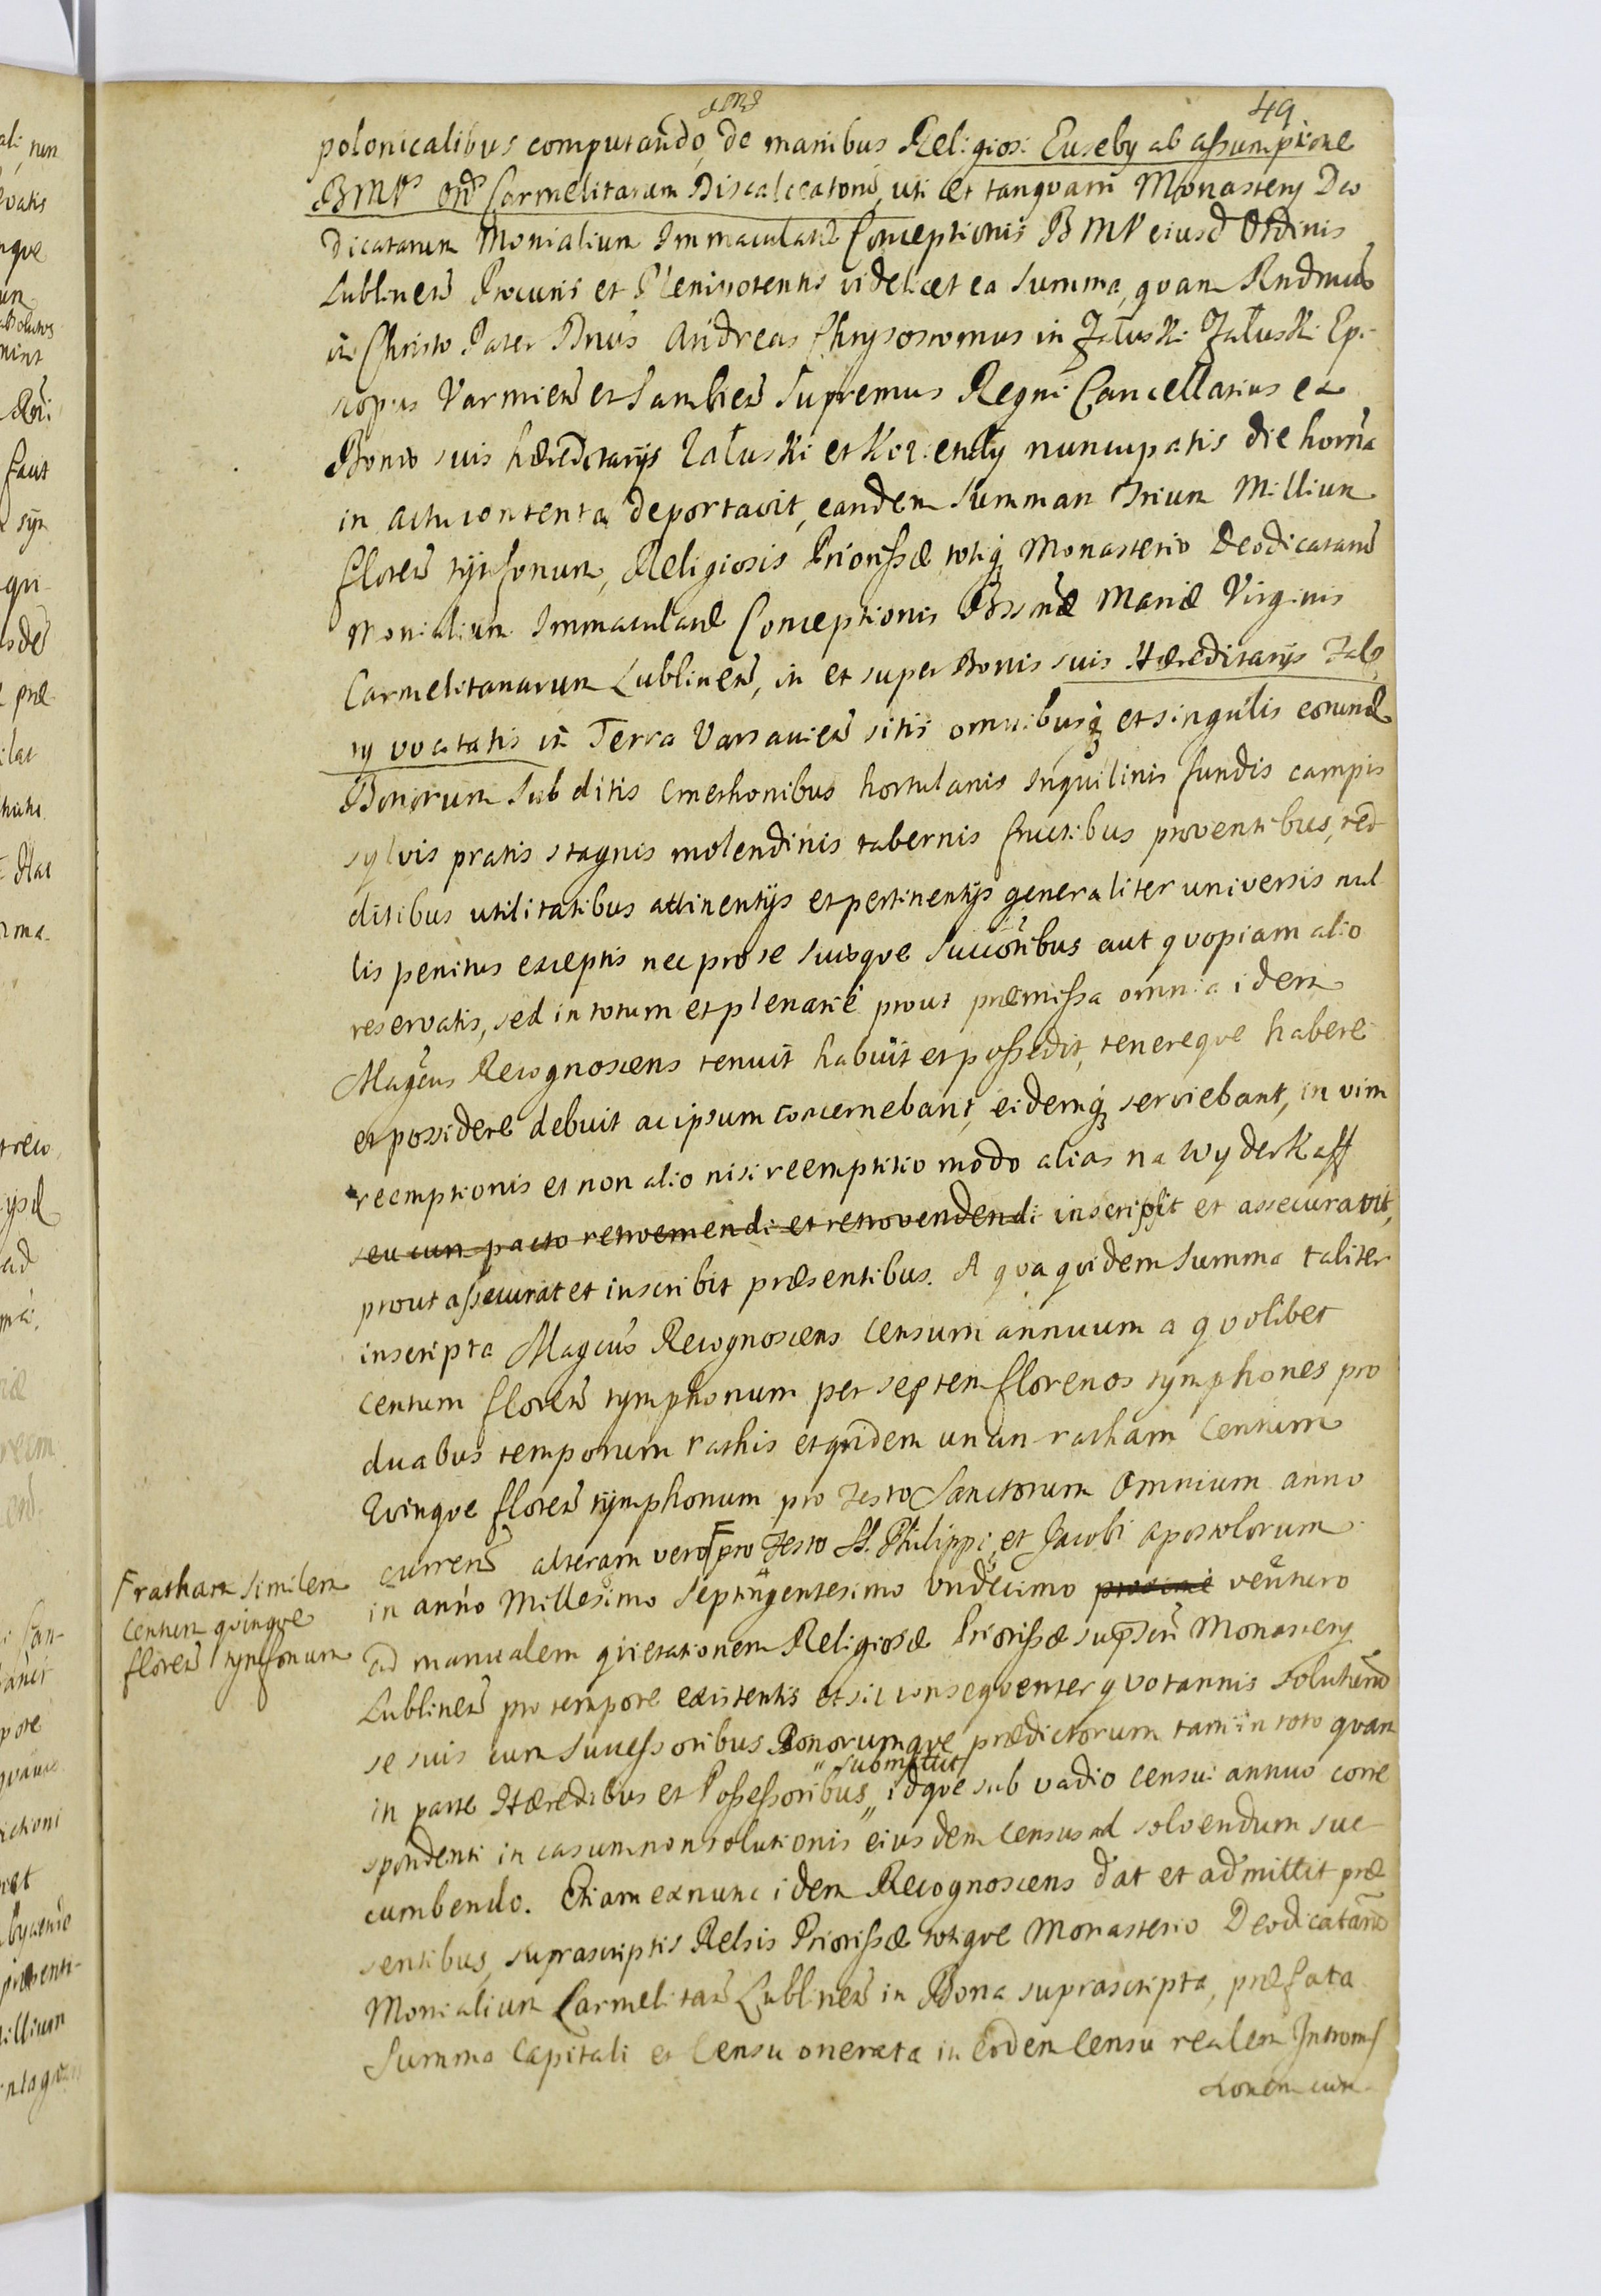 49
polonicalibus computando, de manibus Religiosi Euseby ab assumptione
BMVs Ordis Carmelitarum Discalceatorum, uti et tanquam Monastery Deo
dicatarum Monialium Immaculatæ Conceptionis BMV eiusd Ordinis
Lublinen Procuris et Plenipotentis videlicet ea summa, quam Rndmus
in Christo Pater Dnus Andreas Chrysostomus in Załuski Załuski Epi-
scopus Varmien et Sambien Supremus Regni Cancellarius ex
Bonis suis hæreditarijs Załuski et nuncupatis die horna
in actu contenta deportavit, eandem summam Trium Millium
floren tynfonum, Religiosis Priorissæ totiq Monasterio Deodicatarum
Monialium Immaculatæ Conceptionis Bssmæ Mariæ Virginis
Carmelitanarum Lublinen, in et super Bonis suis Hæreditarijs
ry vocitatis in Terra Varsavien sitis omnibusq et singulis eorund
Bonorum subditis Cmethonibus hortulanis Inquilinis fundis campis
sylvis pratis stagnis molendinis tabernis fructibus proventibus, red
ditibus utilitatibus attinentijs et pertinentijs generaliter universis nul
lis penitus exceptis nec pro se suisque succoribus aut quopiam alio
reservatis, sed in totum et plenarie prout præmissa omnia idem
Magcus Recognoscens tenuit habuit et possedit, tenereque habere
et possidere debuit ac ipsum concernebant, eidemq serviebant, in vim
reemptionis et non alio nisi reemptitio modo alias na wyderkaff
seu cum pacto retroemendi et retrovendendi inscripsit et assecuravit,
prout assecurat et inscribit præsentibus. A qua quidem summa taliter
inscripta Magcus Recognoscens censum annuum a quolibet
centum floren tymphonum per septem florenos tymphones pro
duabus temporum rathis et quidem unam ratham Centum
Quinque floren tymphonum pro Festo Sanctorum Omnium anno
curren alteram vero F pro Festo SS. Philippi et Jacobi Apostolorum
F ratham similem
Centum quinque
floren tynfonum
in anno Millesimo Septingentesimo Undecimo proxime venturo
ad manualem quietationem Religiosæ Priorissæ supscri Monastery
Lublinen pro tempore existentis et sic consequenter quotannis solutum
se suis cum successoribus Bonorumque prædictorum tam in toto quam
submittit
in parte Hæredibus et Possessoribus " idque sub vadio censui annuo corre
spondenti in casum non solutionis eiusdem census ad solvendum suc
cumbendo. Etiam exnunc idem Recognoscens dat et admittit præ
sentibus, suprascriptis Relsis Priorissæ totique Monasterio Deodicatarum
Monialium Carmelitar Lublinen in Bona suprascripta, præfata
summa Capitali et Censu onerata in eodem censu realem Intromi